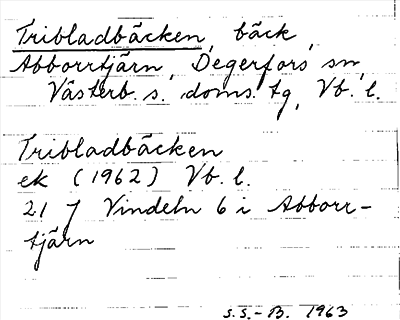 Tribladbäcken, bäck,
Abborrtjärn, Degerfors sn,
Västerb. s. doms. tg, Vb. l.
Tribladbäcken
ek (1962) Vb. l.
21 J Vindeln 6 i Abborr-
tjärn
S.S.-B. 1963